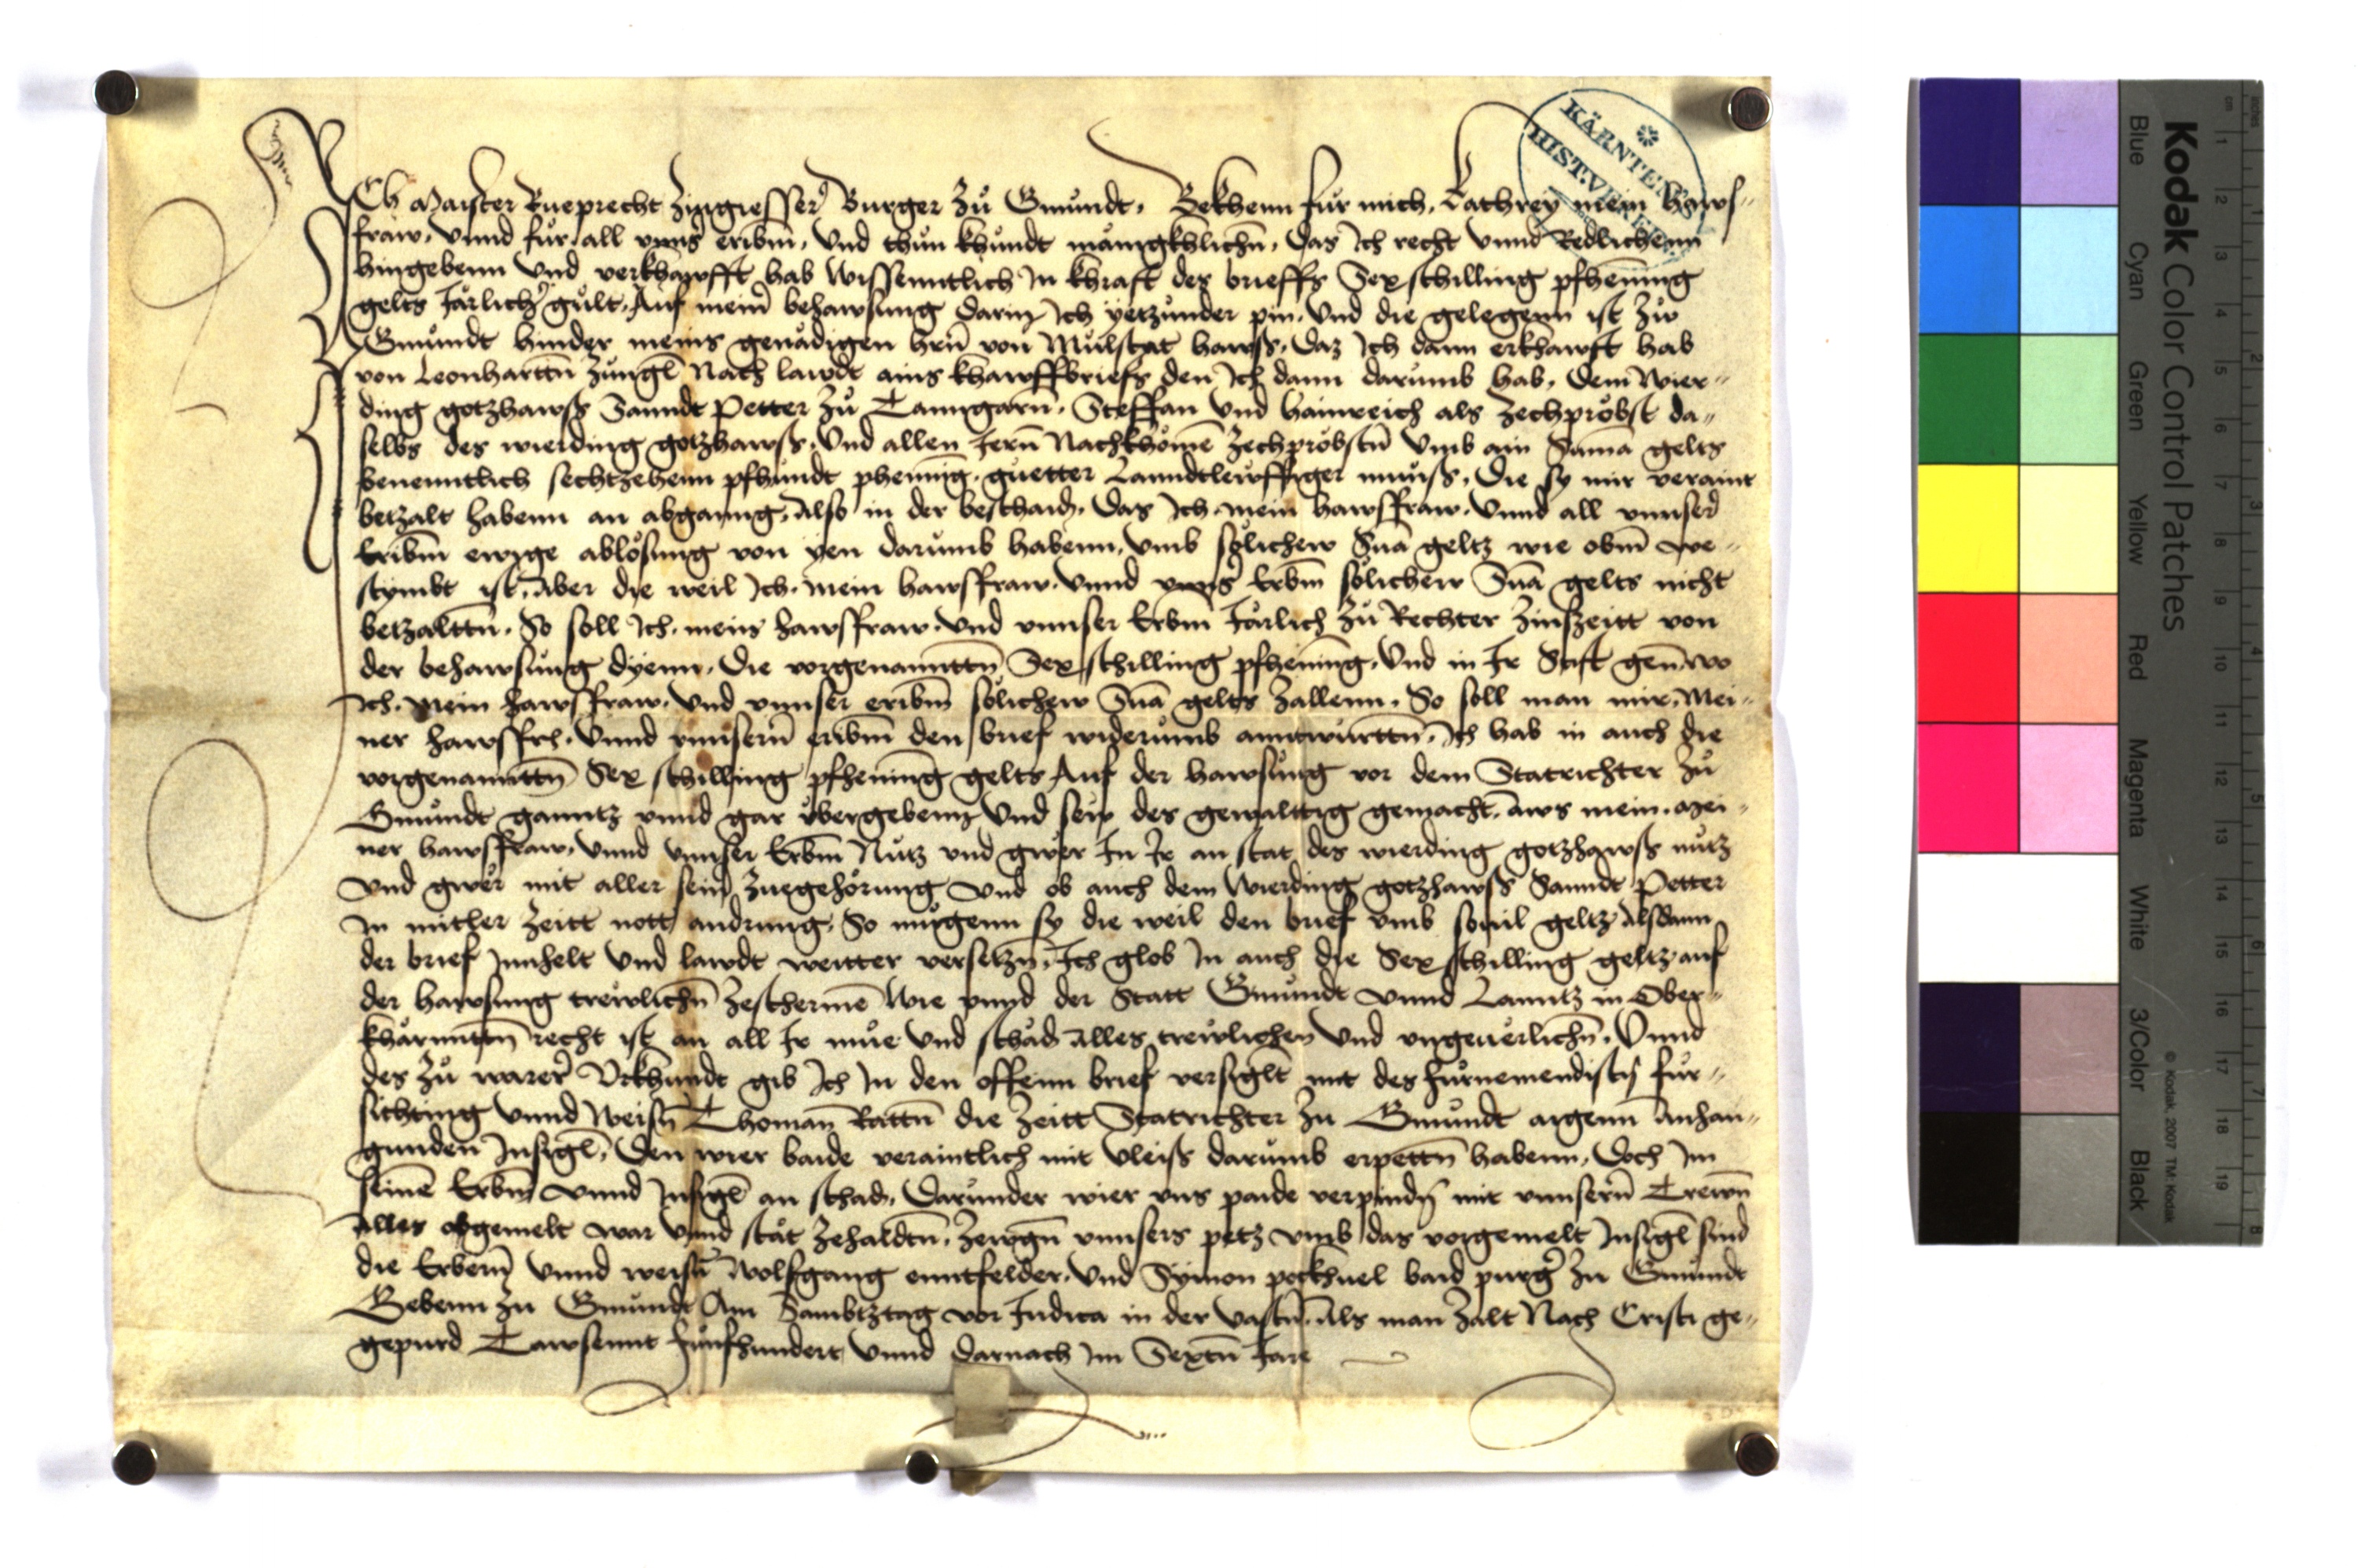 ICh Maister Rueprecht Zingiesser Burger zů Gmůndt, Bekhenn fur mich, Kathrey mein haws-
fraw, vnnd fur all vnns eribm̄, Vnd thůn khůndt mänigkhlichn̄, das Ich recht vnnd Redlichenn
hingebenn Vnd verkhawfft hab wissenntlich In khraft des brieffs Sex schilling phening
gelts Järlicher gůlt, Auf meinr behawsung darin Ich yetzunder pin, Vnd die gelegenn ist zw
Gmůndt hinder meins genädigen hrn̄ von Mŭlstat hawss, Daz Ich dann erkhawft hab
von Leonharttn̄ Zŭngl Nach lawdt ains khawffbriefs den Ich dann darumb hab, dem wier-
ding gotzhawss Sanndt Petter zů Tanngarn̄, Steffan Vnd hainreich als zechpröbst da-
selbs des wierding gotzhawss, Vnd allen Jern̄ Nachkhömē zechpröbstn̄ Vmb ain Sumā gelts
benenntlich sechtzehenn pfhundt phenīng, guetter Lanndtlewffiger munss, Die sy mir veraint
betzalt habenn an abganng, Also in der beschaid, Das Ich mein hawsfraw, Vnnd all vnnser
Eribm̄ ewige ablösung von yen darumb habenn, vmb solichew Sum̄ geltz wie obm̄ we-
stymbt ist, Aber die weil Ich, mein hawsfraw, Vnnd vnns Erbm̄ solichew Sum̄ gelts nicht
betzalttn̄, So soll Ich, mein hawsfraw, Vnd vnnser Erbm̄ Järlich zů Rechter Zinszeitt von
der behawsung dyenn, Die vorgenannttn̄ Sex schilling pfhening, Vnd in Ir gen̄, wo
Ich, mein hawsfraw, Vnd vnnser eribm̄ solichew Sum̄ gelts zallenn, So soll man mir, Mei-
ner hawsfr, Vnnd vnnsern̄ eribm̄ den brief widerumb anntwurttn̄, Ich hab in auch die
vorgenannttn̄ Sex schilling pfhening gelts Auf der hawsung vor dem Statrichter zů
Gmůndt ganntz vnnd gar übergebenn Vnd sew des gewalttig gemacht, aws mein, Mei-
ner hawsfraw, Vnnd vnnser Erbm̄ Nutz vnd gwer In Ir an stat des wierding gotzhawss nutz
Vnd gwer mit aller sein zuegehörung Vnd ob auch dem wierding gotzhawss Sanndt Petter
In mitler zeitt nott andrung, So mugenn sy die weil den brief vmb souil geltz Alsdann
der brief Innhelt Vnd lawdt weitter versetzn̄, Ich glob In auch die Sex schilling geltz auf
der hawsung trewlichn̄ zeschermē wie vnnd der Statt Gmůndt vnnd Lanntz in Ober-
khärnnttn̄ recht ist an all Ir mue Vnd schad Alles trewlichen Vnd vngeuerlichn̄, Vnnd
des zů warer Vrkhundt gib Ich In den offenn brief versiglt mit des furnemendistn̄ fur-
sichting Vnnd Weisn̄ Thoman Rattn̄ die zeitt Statrichter zu Gmůndt aigenn Anhan-
gunden Insigl, Den wier baide veraintlich mit vleiss darumb erpettn̄ habenn, Doch Im
seinē Erbm̄ Vnnd Insigl an schad, Darunder wier vns paide verpindn̄ mit vnnsern̄ Trewn̄
Alles obgemelt war Vnnd stät zehaldtn̄, Zewgn̄ vnnsers petz vmb das vorgemelt Insigl sind
die Erbern̄ Vnnd weisn̄ Wolfgang enntfelder, Vnd Symon pockhuel baid purger zu Gmůndt
Gebenn zu Gmundt Am Sambtztag vor Judica in der vastn̄, Als man zalt Nach Cristi ge-
gepurd Tawsennt funfhundert Vnnd Darnach Im Sextn̄ Jare
KÄRNTEN
HIST. VEREIN
Kodak Color Control Patches
Blue
Cyan
Green
Yellow
Red
Magenta
White
3/Color
Black
© Kodak, 2007 TM: Kodak
cm
1
2
3
4
5
6
7
8
9
10
11
12
13
14
15
16
17
18
19
inches
1
2
3
4
5
6
7
8